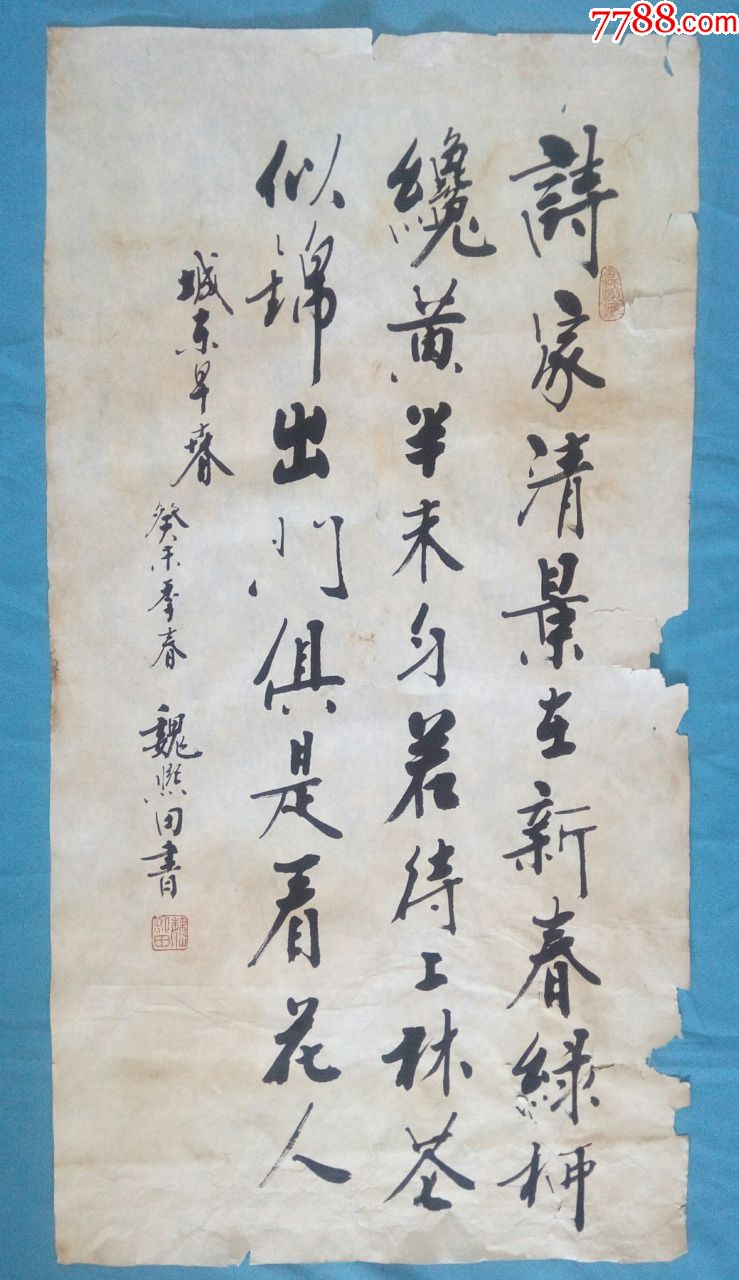 7788.com
詩家清景在新春綠柳
纔黃半未匀若待上林花
似錦出門俱是看花人
城東早春
癸未季春 魏熙田書